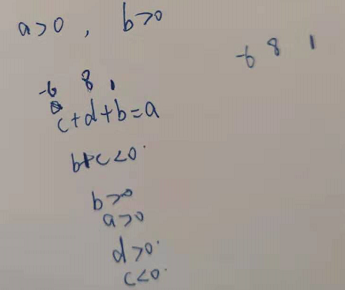 a>0 , b>0
-6 8 1
-6 8 1
c+d+b=a
b+c<0.
b>0
a>0
d>0.
c<0.